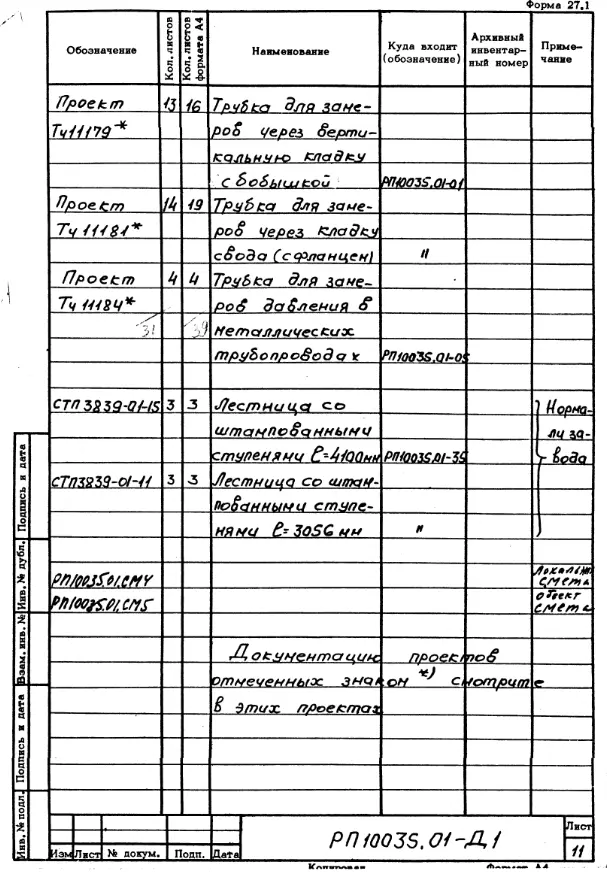 Форма 27.1
Обозначение
Кол. листов
Кол. листов формата А4
Наименование
Куда входит (обозначение)
Архивный инвентарный номер
Примечание
Проект 13 16 Трубка для заме-
Тч11179* ров через верти-
кальную кладку
с бобышкой РП10035.01-01
Проект 14 19 Трубка для заме-
Тч 11181* ров через кладку
свода (с фланцем) "
Проект 4 4 Трубка для заме-
Тч 11184* ров давления в
31 39 металлических
трубопроводах РП10035.01-05
СТП3839-01-15 3 3 Лестница со Норма-
штампованными ли за-
ступенями ℓ=4100мм РП10035.01-35 вода
СТП3839-01-11 3 3 Лестница со штам-
пованными ступе-
нями ℓ=3056 мм "
РП10035.01.СМ4 смета
РП10035.01.СМ5 объект
смета
Документацию проектов
отмеченных знаком *) смотрите
в этих проектах
Инв. № подл. Подпись и дата Взам. инв. № Инв. № дубл. Подпись и дата
РП10035.01-Д1
Лист
11
Изм Лист № докум. Подп. Дата
Копировал Формат А4